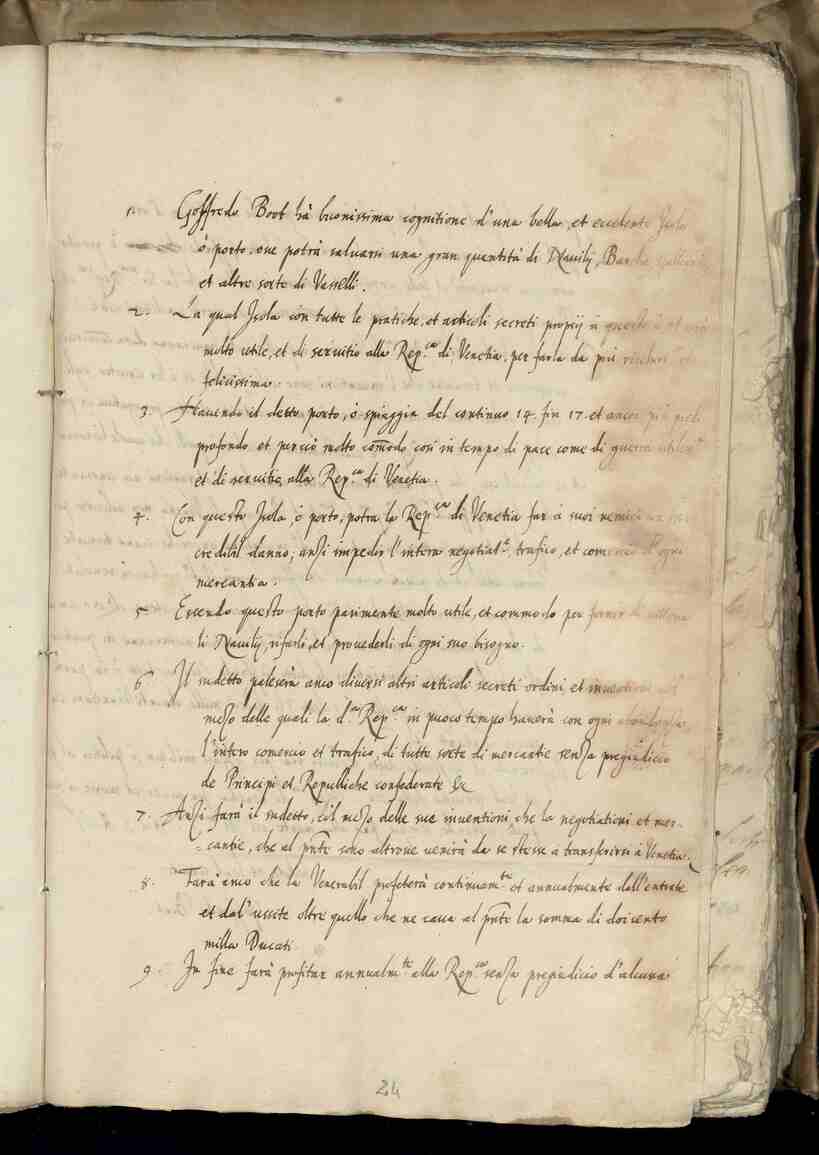 1. Goffredo Boot hà buonissima cognitione d'una bella, et eccelente Isola
ò porto, oue potrà saluarsi una gran quantità di Nauilij, Barche
et altre sorte di Vasselli.
2. La qual Isola con tutte le pratiche, et articoli secreti proprij à questo
molto utile, et di seruitio alla Rep.ca di Venetia, per farla da più
felicissima.
3. Hauendo il detto porto, ò spiaggia del continuo 14. fin 17. et ancor più piedi
profondo et perciò molto comodo così in tempo di pace come di guerra
et di seruitio alla Rep.ca di Venetia.
4. Con questa Isola, ò porto, potrà la Rep.ca di Venetia far à suoi nemici
credibil danno; anzi impedir l'intera negotiat.e trafico, et ogni
mercantia.
5 Essendo questo porto parimente molto utile, et commodo per fornir di
li Nauilij, rifarli, et prouederli di ogni suo bisogno.
6 Il sudetto paleserà anco diuersi altri articoli secreti ordini, et inuentioni
mezo delle quali la d.a Rep.ca in puoco tempo hauerà con ogni
l'intero comercio et trafico, di tutte sorte di mercantie senza pregiudicio
de Principi et Republiche confederate &c
7. Anzi farà il sudetto, col mezo delle sue inuentioni, che la negotiationi et mer-
cantie, che al pnte sono altroue uenirà da se stesse a transferirsi à Venetia.
8. Farà anco che la Venerabil profeterà continuam.te et annualmente dall'entrate
et dal' uscite oltre quello che ne caua al pnte la somma di doicento
milla Ducati.
9. In fine farà profitar annualm.te alla Rep.ca senza pregiudicio d'alcuna
24